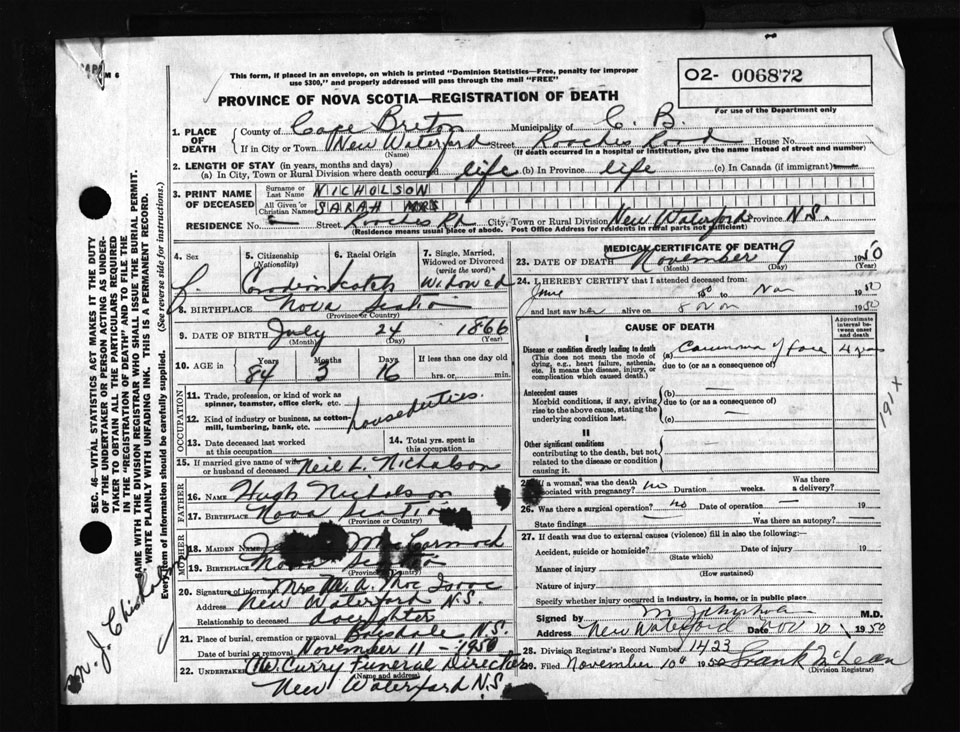 M 6
This form, if placed in an envelope, on which is printed "Dominion Statistics—Free, penalty for improper
use $300," and properly addressed will pass through the mail "FREE"
O2- 006872
For use of the Department only
PROVINCE OF NOVA SCOTIA—REGISTRATION OF DEATH
1. PLACE OF DEATH
County of Cape Breton Municipality of C. B.
If in City or Town New Waterford Street Roaches Road House No.
(Name) (If death occurred in a hospital or institution, give the name instead of street and number)
2. LENGTH OF STAY (in years, months and days)
(a) In City, Town or Rural Division where death occurred life (b) In Province life (c) In Canada (if immigrant) —
3. PRINT NAME OF DECEASED
Surname or Last Name NICHOLSON
All Given or Christian Names SARAH MRS
RESIDENCE No. — Street Roaches Rd City, Town or Rural Division New Waterford Province N.S.
(Residence means usual place of abode. Post Office Address for residents in rural parts not sufficient)
4. Sex
5. Citizenship (Nationality)
6. Racial Origin
7. Single, Married, Widowed or Divorced (write the word)
Scotch Widowed
8. BIRTHPLACE Nova Scotia
(Province or Country)
9. DATE OF BIRTH July 24 1866
(Month) (Day) (Year)
10. AGE in Years Months Days If less than one day old
84 3 16 hrs. or min.
OCCUPATION
11. Trade, profession, or kind of work as spinner, teamster, office clerk, etc.
12. Kind of industry or business, as cotton-mill, lumbering, bank, etc.
house duties.
13. Date deceased last worked at this occupation
14. Total yrs. spent in this occupation
15. If married give name of wife or husband of deceased Neil L. Nicholson
FATHER
16. NAME Hugh Nicholson
17. BIRTHPLACE Nova Scotia
(Province or Country)
MOTHER
18. MAIDEN NAME McCormack
19. BIRTHPLACE Nova Scotia
(Province or Country)
20. Signature of informant Mrs M. A. Mac Isaac
Address New Waterford N.S.
Relationship to deceased daughter
21. Place of burial, cremation or removal Boisdale N.S.
Date of burial or removal November 11 - 1950
22. UNDERTAKER McCurry Funeral Director
(Name and address)
New Waterford N.S.
MEDICAL CERTIFICATE OF DEATH
23. DATE OF DEATH November 9 1950
(Month) (Day) (Year)
24. I HEREBY CERTIFY that I attended deceased from:
June 1950 to Nov 1950
and last saw her alive on 8 Nov 1950
CAUSE OF DEATH
Approximate interval between onset and death
I
Disease or condition directly leading to death
(This does not mean the mode of dying, e.g., heart failure, asthenia, etc. It means the disease, injury, or complication which caused death.)
(a) Carcinoma of face 4 years
due to (or as a consequence of)
Antecedent causes
Morbid conditions, if any, giving rise to the above cause, stating the underlying condition last.
(b) —
due to (or as a consequence of)
(c) —
II
Other significant conditions
contributing to the death, but not related to the disease or condition causing it.
191 x
25. If a woman, was the death associated with pregnancy? no Duration weeks. Was there a delivery?
26. Was there a surgical operation? no Date of operation — 19
State findings — Was there an autopsy? —
27. If death was due to external causes (violence) fill in also the following:
Accident, suicide or homicide? Date of injury 19
(State which)
Manner of injury
(How sustained)
Nature of injury
Specify whether injury occurred in industry, in home, or in public place
Signed by M.D.
Address New Waterford Date Nov 10 1950
28. Division Registrar's Record Number 1423
29. Filed November 10th 1950 Frank McLean
(Division Registrar)
SEC. 46—VITAL STATISTICS ACT MAKES IT THE DUTY
OF THE UNDERTAKER OR PERSON ACTING AS UNDER-
TAKER TO OBTAIN ALL THE PARTICULARS REQUIRED
IN THE "REGISTRATION OF DEATH" AND TO FILE THE
SAME WITH THE DIVISION REGISTRAR WHO SHALL ISSUE THE BURIAL PERMIT.
WRITE PLAINLY WITH UNFADING INK. THIS IS A PERMANENT RECORD.
Every item of information should be carefully supplied. (See reverse side for instructions.)
J. Chisholm